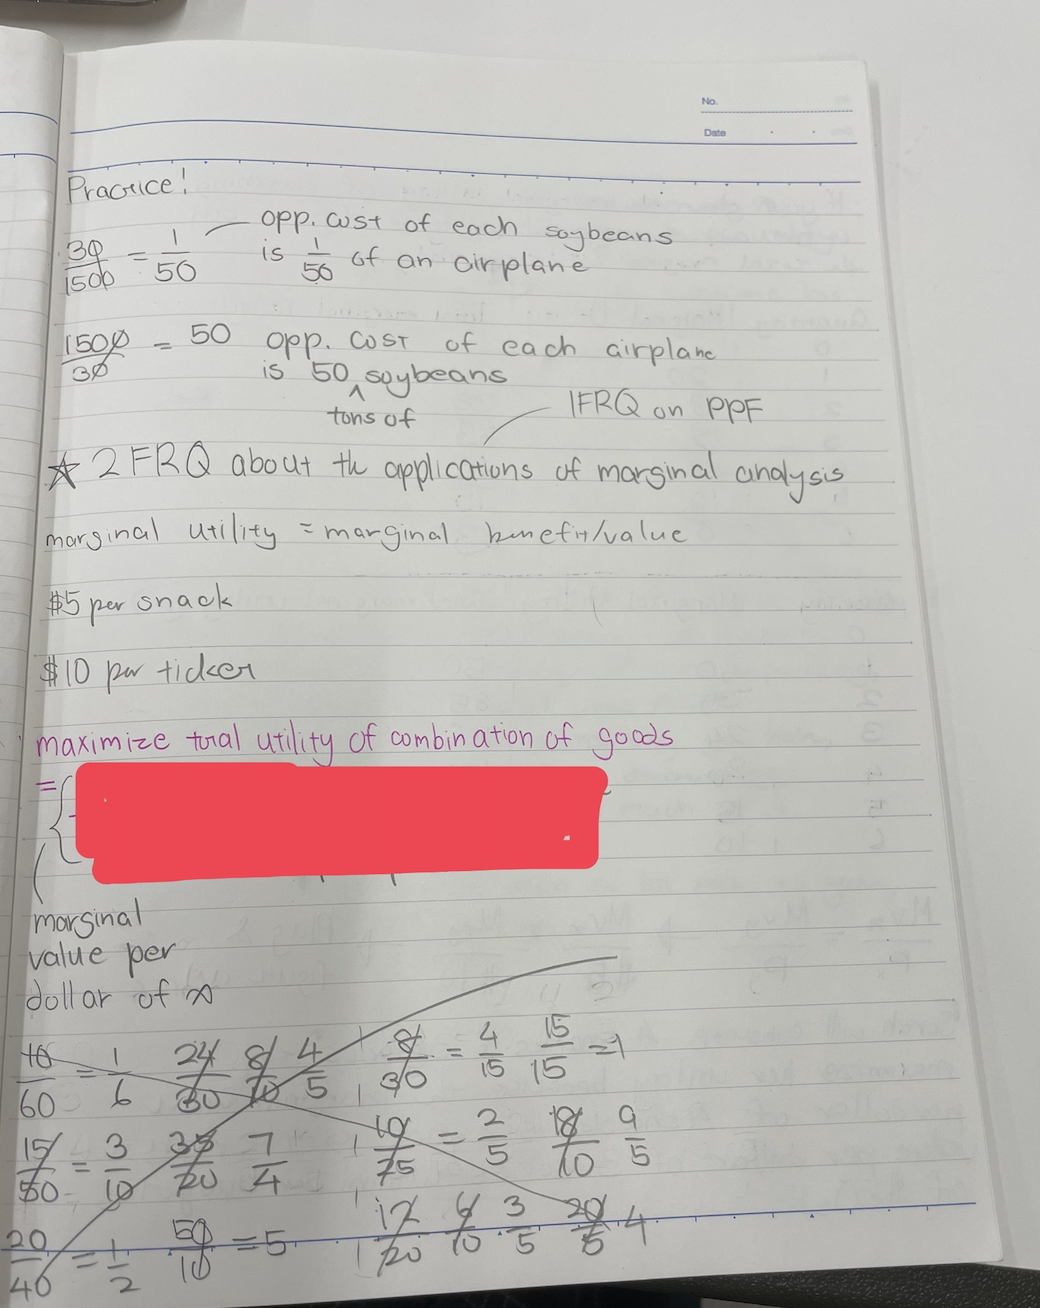 No.
Date
Practice!
30/1500 = 1/50 opp. cost of each soybeans
is 1/50 of an airplane
1500/30 = 50 opp. cost of each airplane
is 50 soybeans
^
tons of
1FRQ on PPF
☆ 2 FRQ about th applications of marginal analysis
marginal utility = marginal benefit/value
$5 per snack
$10 per ticket
maximize total utility of combination of goods
= {
marginal
value per
dollar of x
10/60 = 1/6 24/30 8/10 4/5 8/30 = 4/15 15/15 = 1
15/50 = 3/10 35/20 7/4 10/25 = 2/5 18/10 9/5
20/40 = 1/2 50/10 = 5 12/20 6/10 3/5 20/5 4